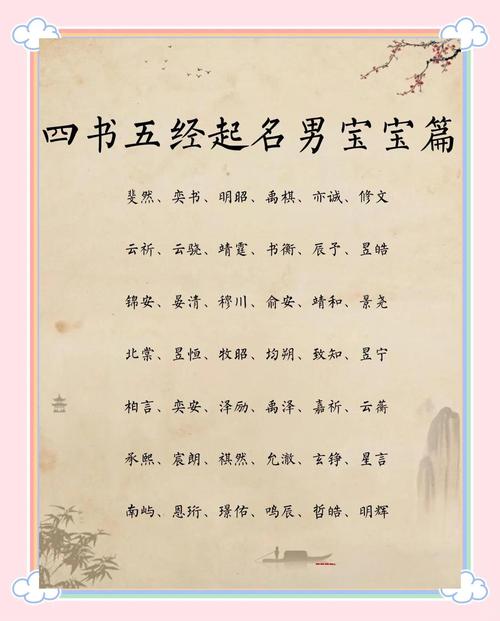 四书五经起名男宝宝篇
斐然、奕书、明昭、禹棋、亦诚、修文
云祈、云骁、靖霆、书衡、辰予、昱皓
锦安、晏清、穆川、俞安、靖和、景尧
北棠、昱恒、牧昭、均朔、致知、昱宁
柏言、奕安、泽励、禹泽、嘉祈、云蘅
承熙、宸朗、祺然、允澈、玄铮、星言
南屿、恩珩、璟佑、鸣辰、哲皓、明辉